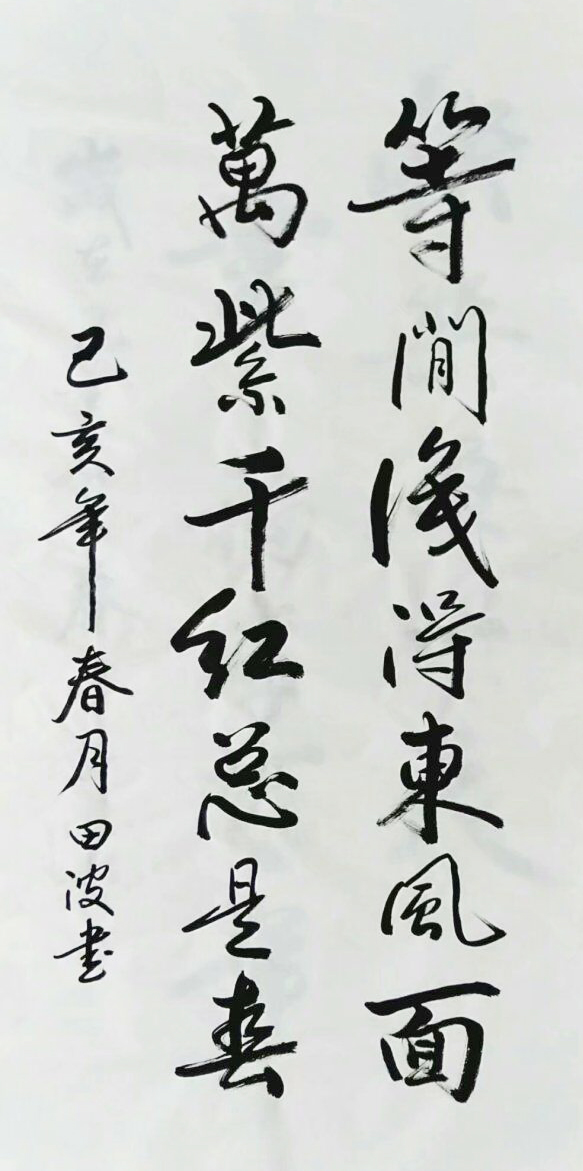 等閒識得東風面
萬紫千红总是春
己亥年春月田波书